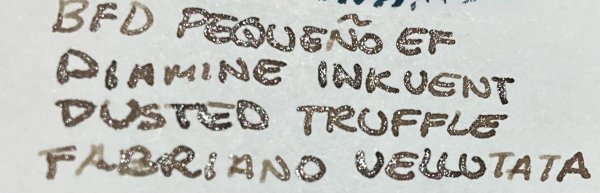 BFD PEQUEÑO EF
DIAMINE INKVENT
DUSTED TRUFFLE
FABRIANO VELLUTATA